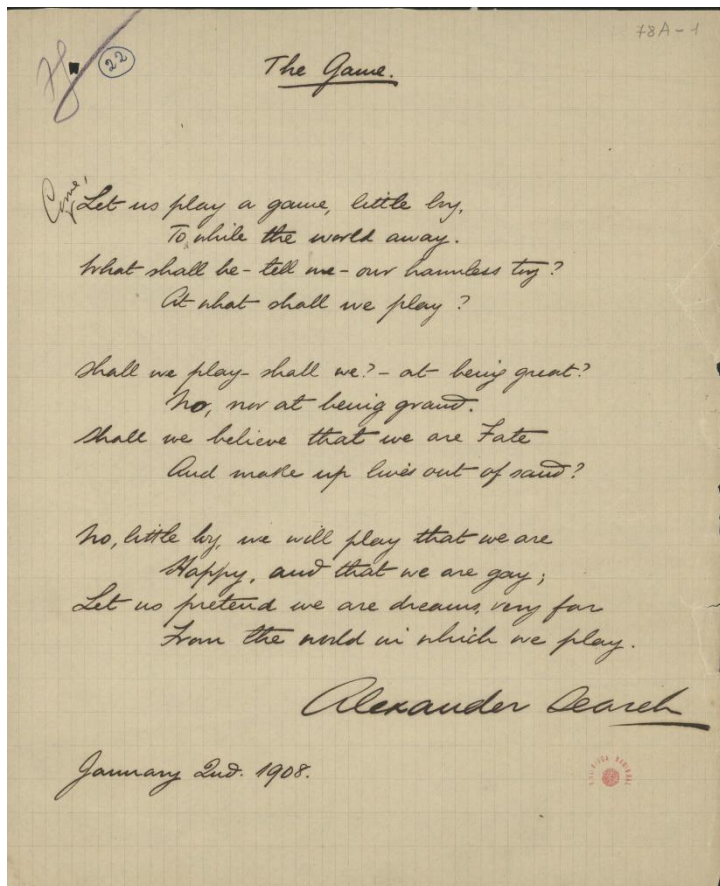 78A-1
22
The Game.
Come!
Let us play a game, little boy,
To while the world away.
What shall be - tell me - our harmless toy?
At what shall we play?
Shall we play - shall we? - at being great?
No, nor at being grand.
Shall we believe that we are Fate
And make up lives out of sand?
No, little boy, we will play that we are
Happy, and that we are gay;
Let us pretend we are dreams, very far
From the world in which we play.
Alexander Search
January 2nd. 1908.
BIBLIOTECA NACIONAL